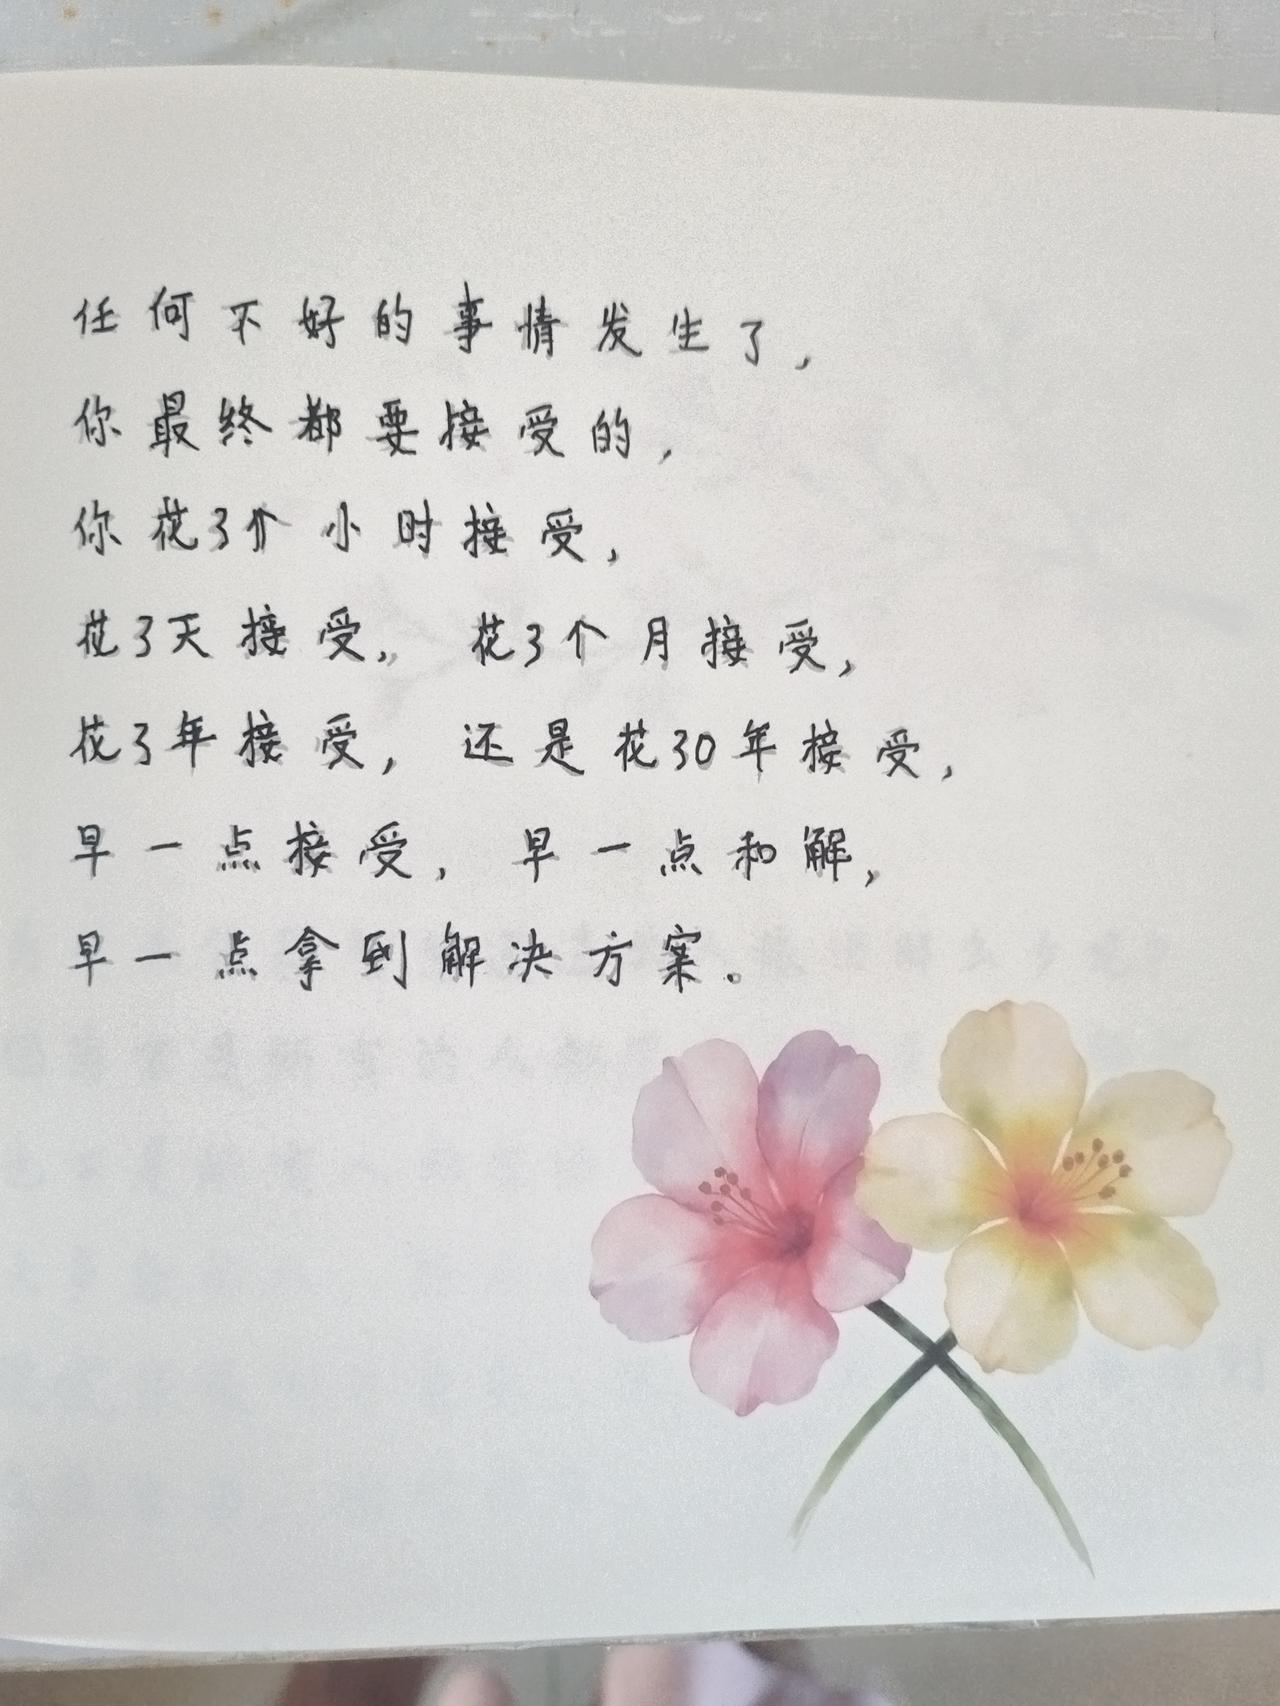 任何不好的事情发生了,
你最终都要接受的,
你花3个小时接受,
花3天接受, 花3个月接受,
花3年接受, 还是花30年接受,
早一点接受, 早一点和解,
早一点拿到解决方案。